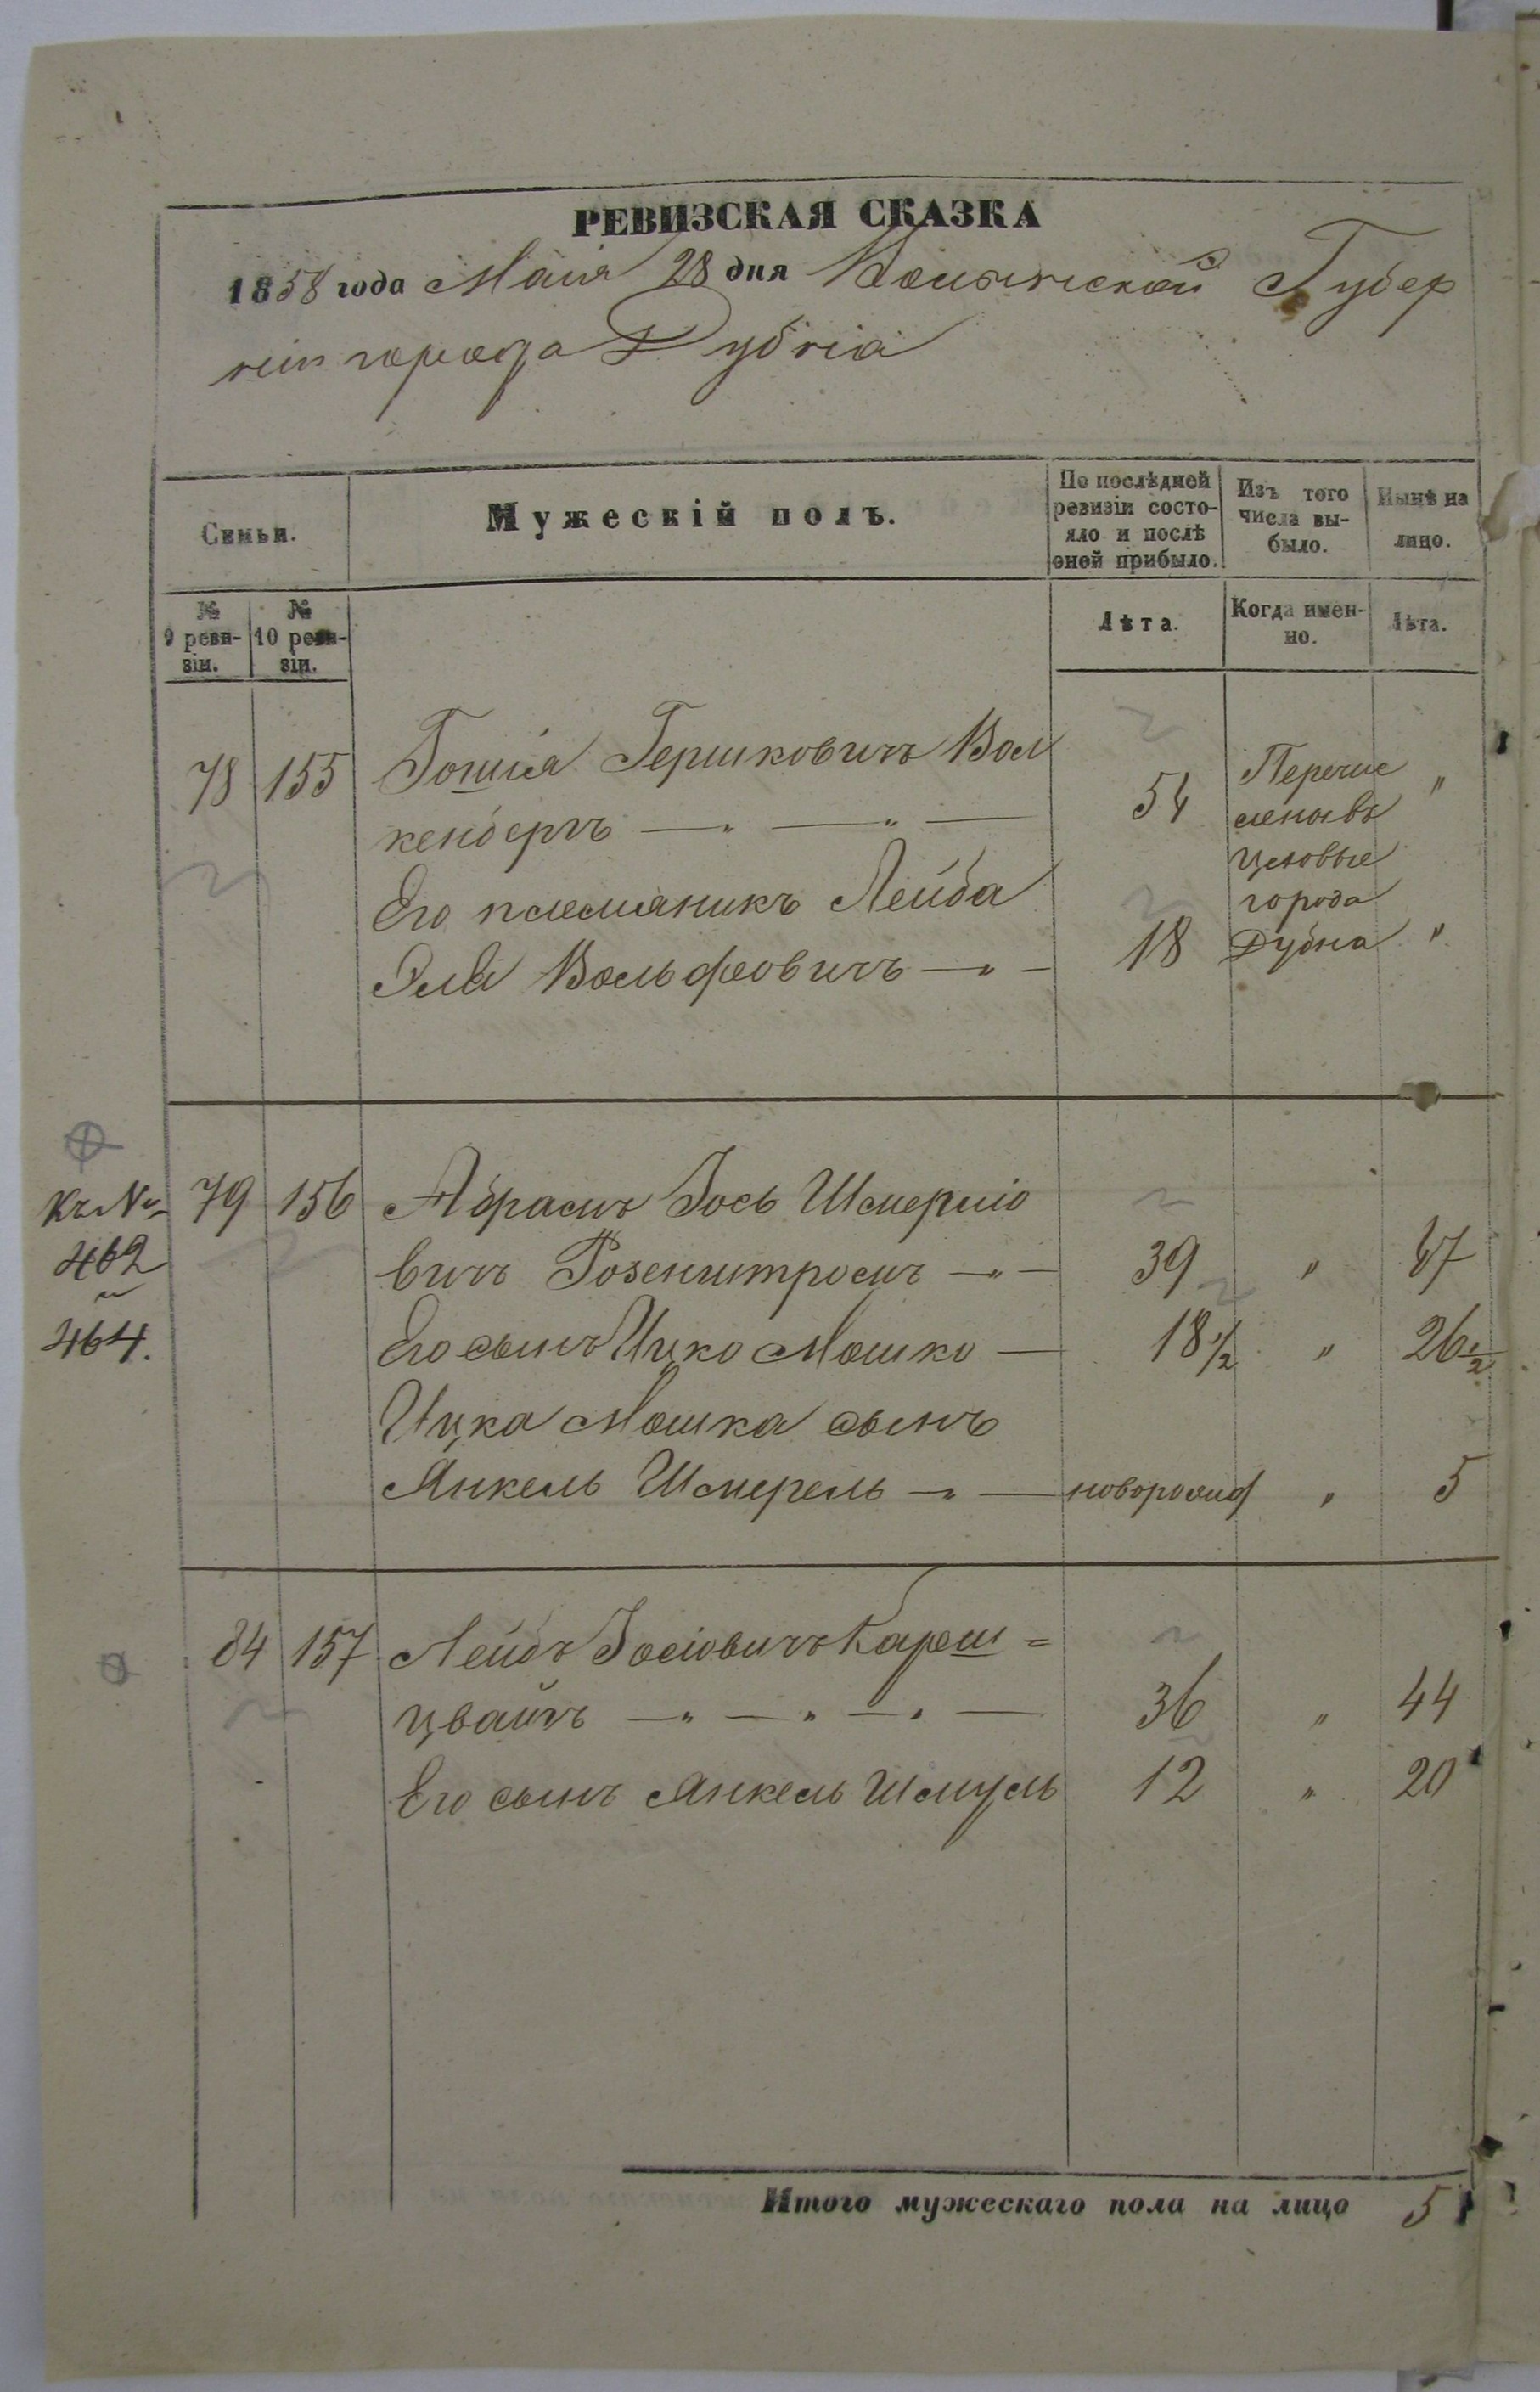 РЕВИЗСКАЯ СКАЗКА
1858 года Маія 28 дня Волынской Губер
ніи города Дубна
Семьи.
Мужескій полъ.
По послѣдней ревизіи состо-
яло и послѣ
оной прибыло.
Изъ того
числа вы-
было.
Нынѣ на
лицо.
№
9 реви-
зіи.
№
10 реви-
зіи.
Лѣта.
Когда имен-
но.
Лѣта.
78 155 Гершковичъ Вол
кенбергъ — " — " — 54 Перечис "
ленъ въ
цеховые
Его племяникъ Лейба города
Эля Вольфовичъ — " — 18 Дубна "
Къ №
462
и
464.
79 156 Абрамъ Іось Шмеріо
вичъ Розенштромъ — " — 39 " 47
Его сынъ Ицко Мошко — 18 1/2 " 26 1/2
Ицка Мошка сынъ
Янкель Шмерель — " — новорожд " 5
84 157 Лейбъ Іосіовичъ Кареш=
цвайгъ — " — " — " — 36 " 44
Его сынъ Янкель Шмуль 12 " 20
Итого мужескаго пола на лицо 5